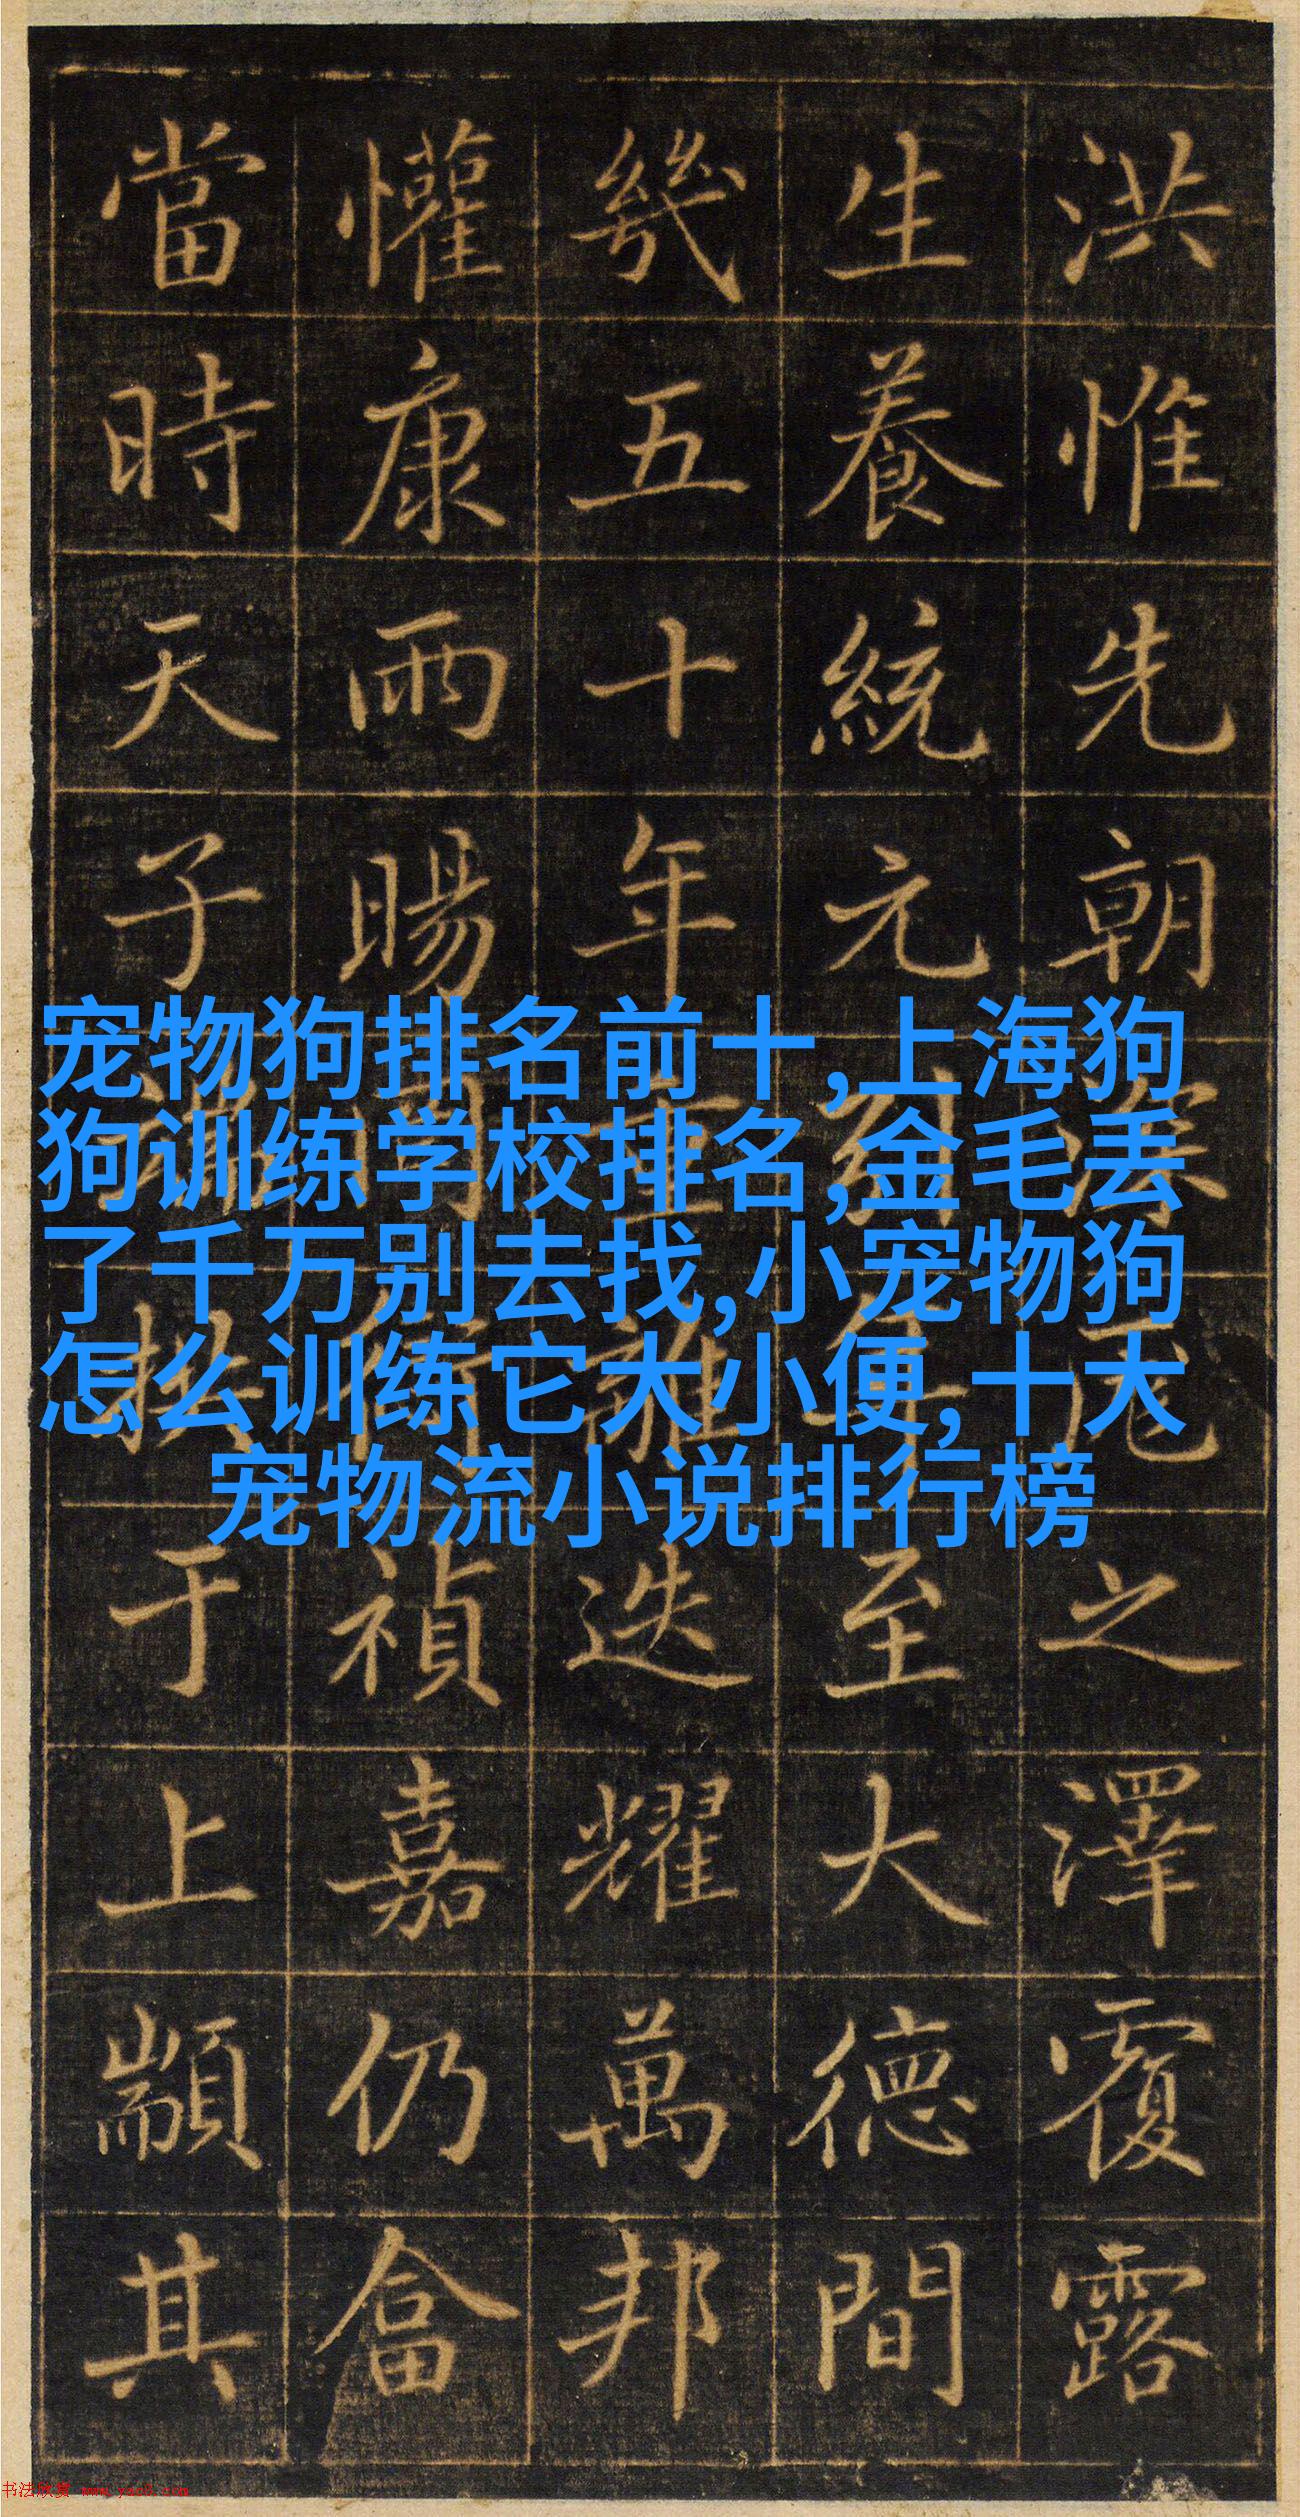 洪惟先朝之澤覆露
生養統元至大德間
幾五十年迭耀萬邦
懽康雨暘禎嘉仍畣
當時天子于上顓其
宠物狗排名前十,上海狗
狗训练学校排名,金毛丢
了千万别去找,小宠物狗
怎么训练它大小便,十大
宠物流小说排行榜
书法欣赏